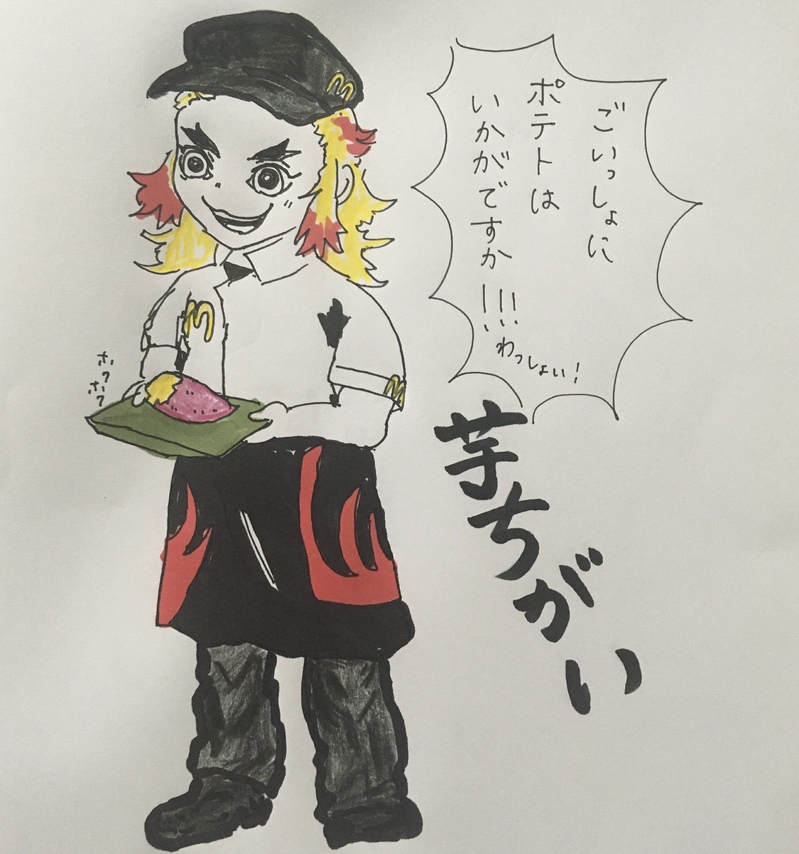 ごいっしょに
ポテトは
いかがですか!!!
わっしょい!
ホクホク
芋ちがい